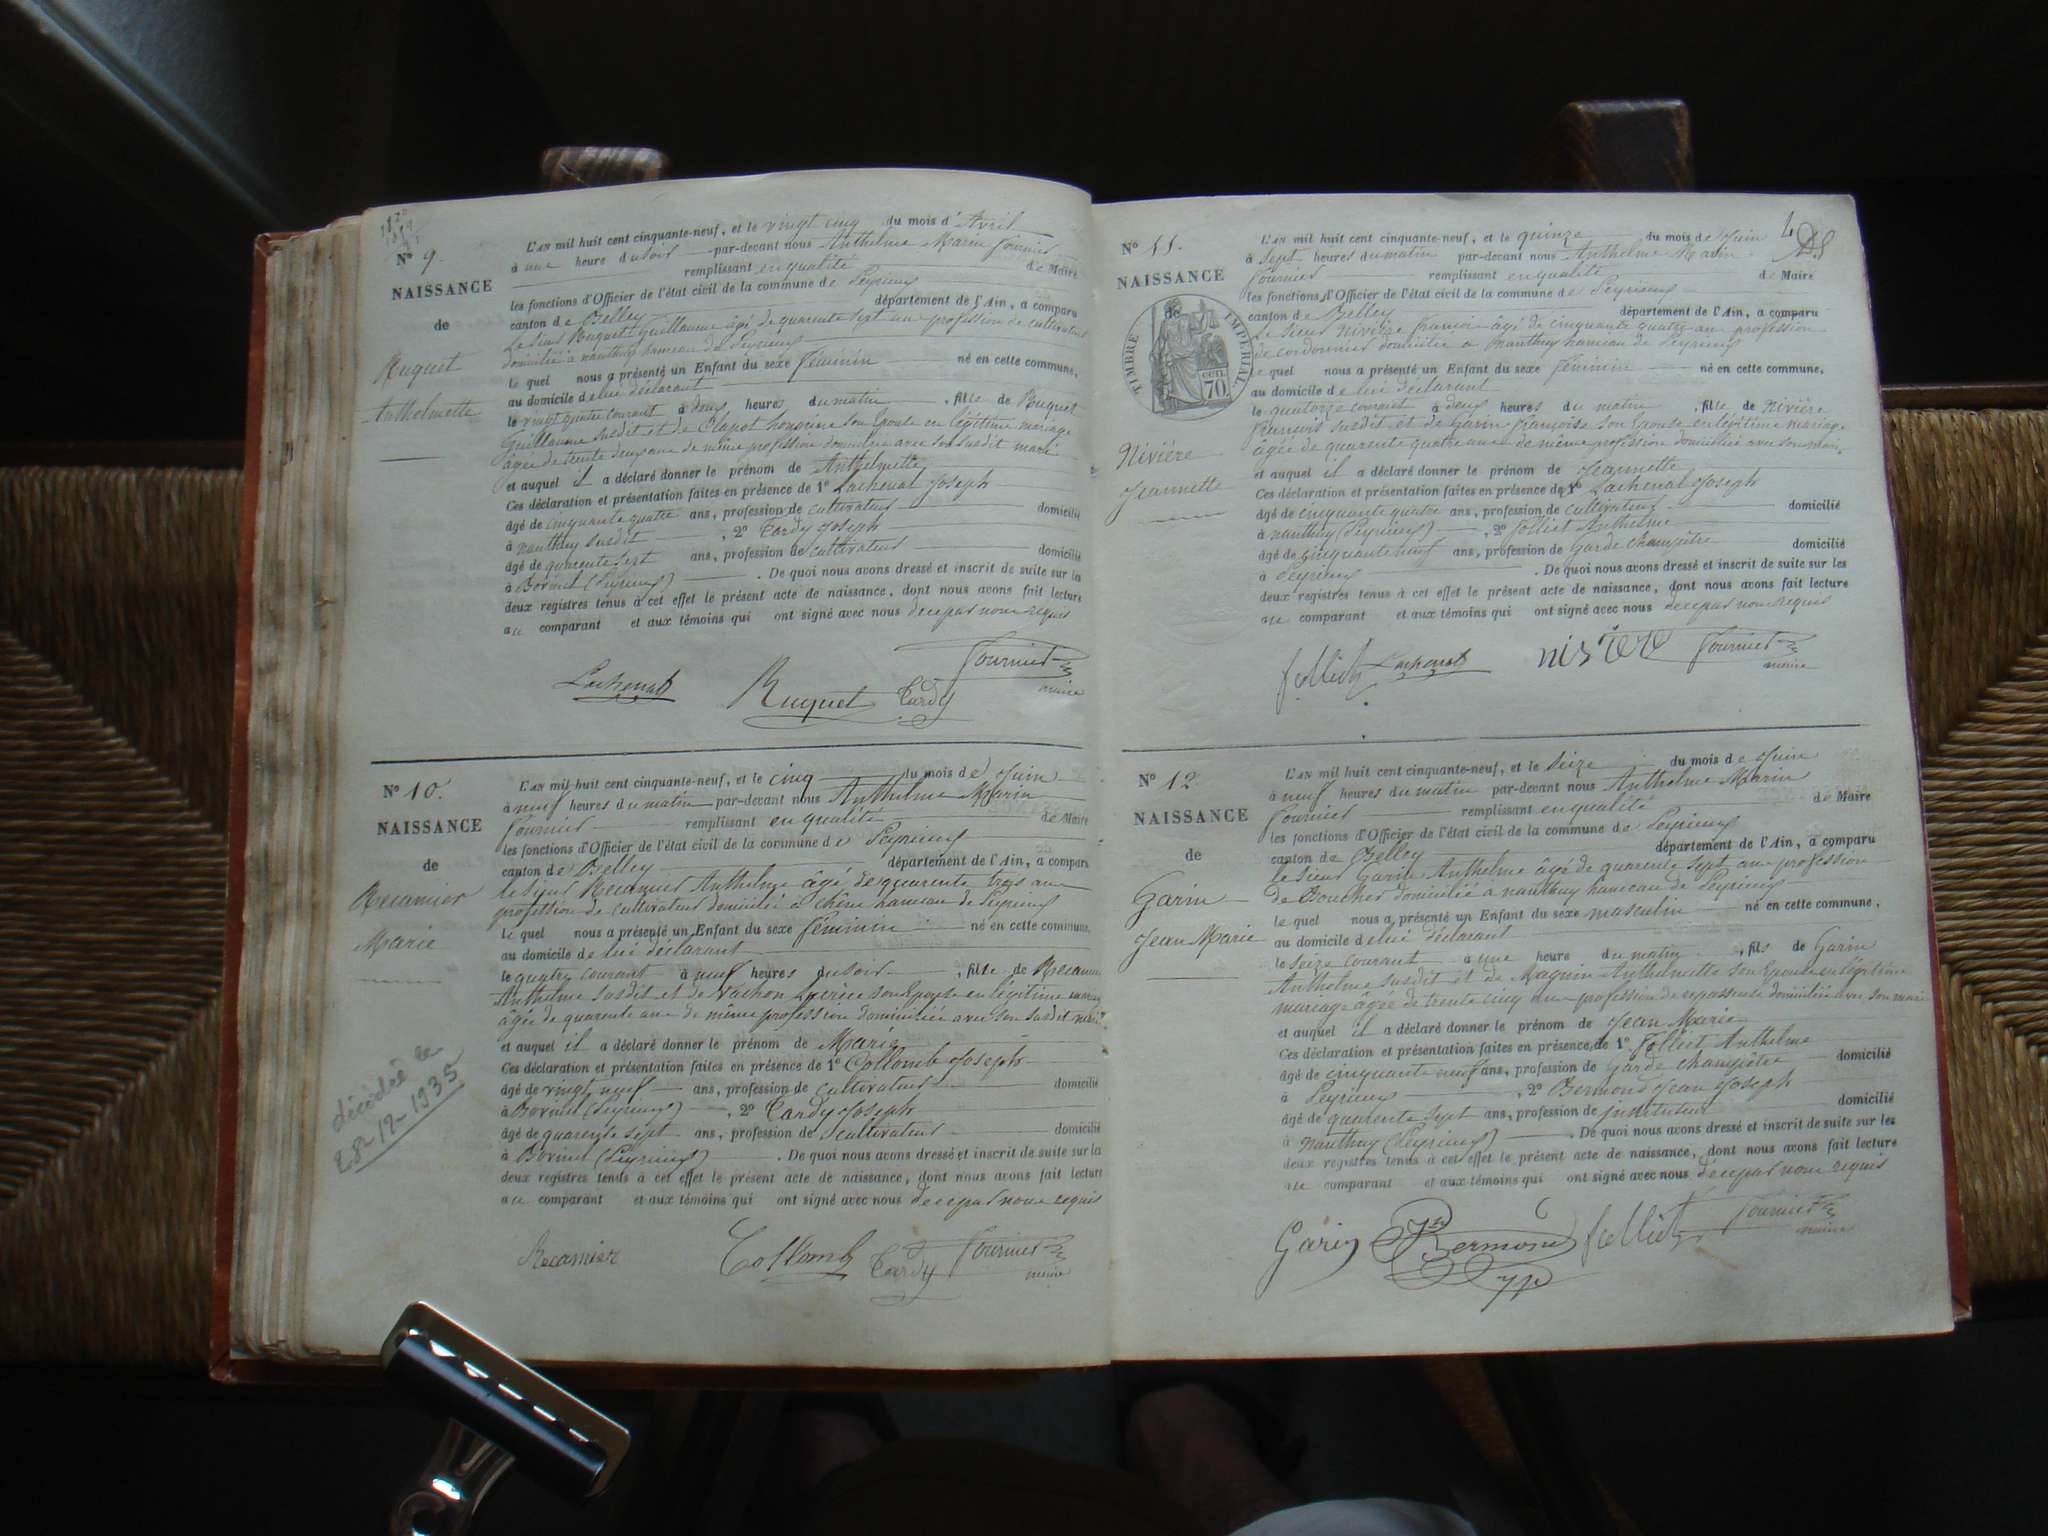 N° 9.
NAISSANCE
de
Ruquet
Anthelmette
L'AN mil huit cent cinquante-neuf, et le vingt cinq du mois d'Avril
à une heure du soir par-devant nous Anthelme Marin Fournier
remplissant en qualité de Maire
les fonctions d'Officier de l'état civil de la commune de Peyrieux
canton de Belley département de l'Ain, a comparu
Le sieur Ruquet Guillaume âgé de quarente sept ans profession de cultivateur
domicilié à nanthuy hameau de Peyrieux
le quel nous a présenté un Enfant du sexe féminin né en cette commune,
au domicile de lui déclarant
le vingt quatre courant à deux heures du matin, fille de Ruquet
Guillaume susdit et de Clapot honorine son Epouse en légitime mariage
âgée de trente deux ans de même profession domiciliée avec son susdit mari
et auquel il a déclaré donner le prénom de Anthelmette
Ces déclaration et présentation faites en présence de 1° Lachenal Joseph
âgé de cinquante quatre ans, profession de cultivateur domicilié
à nanthuy susdit, 2° Tardy Joseph
âgé de quarente sept ans, profession de cultivateur domicilié
à Borinet (Peyrieux). De quoi nous avons dressé et inscrit de suite sur les
deux registres tenus à cet effet le présent acte de naissance, dont nous avons fait lecture
au comparant et aux témoins qui ont signé avec nous de ce par nous requis
Lachenal Ruquet Tardy Fournier
maire
N° 10.
NAISSANCE
de
Recamier
Marie
décédée le
28-12-1935
L'AN mil huit cent cinquante-neuf, et le cinq du mois de Juin
à neuf heures du matin par-devant nous Anthelme Marin
Fournier remplissant en qualité de Maire
les fonctions d'Officier de l'état civil de la commune de Peyrieux
canton de Belley département de l'Ain, a comparu
le sieur Recamier Anthelme âgé de quarente trois ans
profession de cultivateur domicilié à chêne hameau de Peyrieux
le quel nous a présenté un Enfant du sexe féminin né en cette commune,
au domicile de lui déclarant
le quatre courant à neuf heures du soir, fille de Recamier
Anthelme susdit et de Vachon son Epouse en légitime mariage
âgée de quarente ans de même profession domiciliée avec son susdit mari
et auquel il a déclaré donner le prénom de Marie
Ces déclaration et présentation faites en présence de 1° Collomb Joseph
âgé de vingt neuf ans, profession de cultivateur domicilié
à Borinet (Peyrieux), 2° Tardy Joseph
âgé de quarente sept ans, profession de cultivateur domicilié
à Borinet (Peyrieux). De quoi nous avons dressé et inscrit de suite sur les
deux registres tenus à cet effet le présent acte de naissance, dont nous avons fait lecture
au comparant et aux témoins qui ont signé avec nous de ce par nous requis
Recamier Collomb Tardy Fournier
maire
N° 11.
NAISSANCE
de
TIMBRE IMPERIAL
CENT.
70
Nivière
Jeannette
L'AN mil huit cent cinquante-neuf, et le quinze du mois de Juin
à sept heures du matin par-devant nous Anthelme Marin
Fournier remplissant en qualité de Maire
les fonctions d'Officier de l'état civil de la commune de Peyrieux
canton de Belley département de l'Ain, a comparu
le sieur Nivière françois âgé de cinquante quatre ans profession
de cordonnier domicilié à Nanthuy hameau de Peyrieux
le quel nous a présenté un Enfant du sexe féminin né en cette commune,
au domicile de lui déclarant
le quatorze courant à deux heures du matin, fille de Nivière
françois susdit et de Garin françoise son Epouse en légitime mariage
âgée de quarente quatre ans de même profession domiciliée avec son mari
et auquel il a déclaré donner le prénom de Jeannette
Ces déclaration et présentation faites en présence de 1° Lachenal Joseph
âgé de cinquante quatre ans, profession de cultivateur domicilié
à nanthuy (Peyrieux), 2° Jolliet Anthelme
âgé de cinquante neuf ans, profession de garde champêtre domicilié
à Peyrieux. De quoi nous avons dressé et inscrit de suite sur les
deux registres tenus à cet effet le présent acte de naissance, dont nous avons fait lecture
au comparant et aux témoins qui ont signé avec nous de ce par nous requis
Jolliet Lachenal nivière Fournier
maire
N° 12.
NAISSANCE
de
Garin
Jean Marie
L'AN mil huit cent cinquante-neuf, et le seize du mois de Juin
à neuf heures du matin par-devant nous Anthelme Marin
Fournier remplissant en qualité de Maire
les fonctions d'Officier de l'état civil de la commune de Peyrieux
canton de Belley département de l'Ain, a comparu
le sieur Garin Anthelme âgé de quarente sept ans profession
de Boucher domicilié à nanthuy hameau de Peyrieux
le quel nous a présenté un Enfant du sexe masculin né en cette commune,
au domicile de lui déclarant
le seize courant à une heure du matin, fils de Garin
Anthelme susdit et de Magnin Anthelmette son Epouse en légitime
mariage âgée de trente cinq ans profession de repasseuse domiciliée avec son mari
et auquel il a déclaré donner le prénom de Jean Marie
Ces déclaration et présentation faites en présence de 1° Jolliet Anthelme
âgé de cinquante neuf ans, profession de Garde champêtre domicilié
à Peyrieux, 2° Bermond Jean Joseph
âgé de quarente sept ans, profession de instituteur domicilié
à nanthuy (Peyrieux). De quoi nous avons dressé et inscrit de suite sur les
deux registres tenus à cet effet le présent acte de naissance, dont nous avons fait lecture
au comparant et aux témoins qui ont signé avec nous de ce par nous requis
Garin Bermond Jolliet Fournier
maire